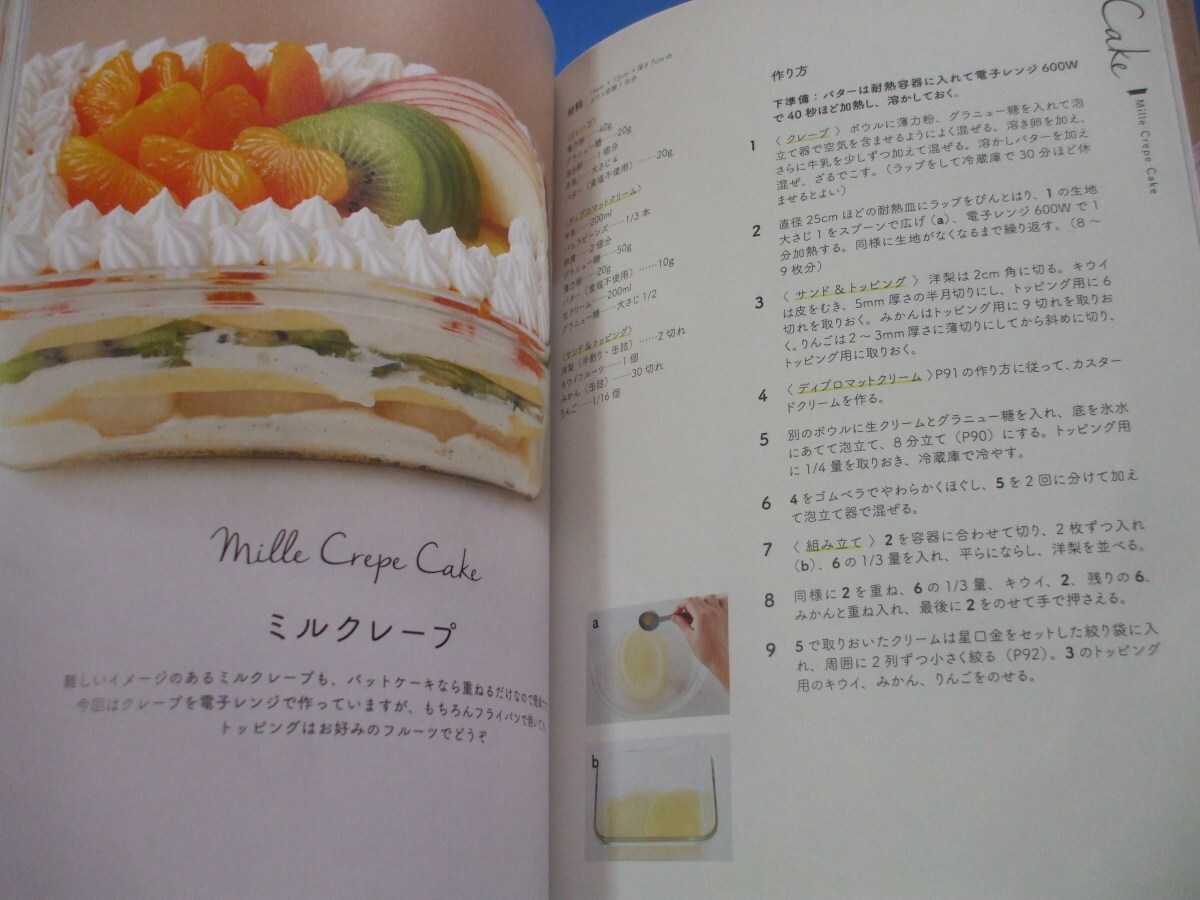 Mille Crepe Cake
ミルクレープ
難しいイメージのあるミルクレープも、バットケーキなら重ねるだけなので
今回はクレープを電子レンジで作っていますが、もちろんフライパンで焼いて
トッピングはお好みのフルーツでどうぞ
材料
〈クレープ〉
薄力粉……40g
グラニュー糖……20g
溶き卵……1個分
牛乳……大さじ4
バター（食塩不使用）……20g
〈ディプロマットクリーム〉
牛乳……200ml
バニラビーンズ……1/3本
卵黄……2個分
グラニュー糖……50g
薄力粉……20g
バター（食塩不使用）……10g
生クリーム……200ml
グラニュー糖……大さじ1/2
〈サンド&トッピング〉
洋梨（半割り・缶詰）……2切れ
キウイフルーツ……1個
みかん（缶詰）……30切れ
りんご……1/16個
a
b
作り方
下準備：バターは耐熱容器に入れて電子レンジ600W
で40秒ほど加熱し、溶かしておく。
1 〈クレープ〉ボウルに薄力粉、グラニュー糖を入れて泡
立て器で空気を含ませるようによく混ぜる。溶き卵を加え、
さらに牛乳を少しずつ加えて混ぜる。溶かしバターを加え
混ぜ、ざるでこす。（ラップをして冷蔵庫で30分ほど休
ませるとよい）
2 直径25cmほどの耐熱皿にラップをぴんとはり、1の生地
大さじ1をスプーンで広げ（a）、電子レンジ600Wで1
分加熱する。同様に生地がなくなるまで繰り返す。（8〜
9枚分）
3 〈サンド&トッピング〉洋梨は2cm角に切る。キウイ
は皮をむき、5mm厚さの半月切りにし、トッピング用に6
切れを取りおく。みかんはトッピング用に9切れを取りお
く。りんごは2〜3mm厚さに薄切りにしてから斜めに切り、
トッピング用に取りおく。
4 〈ディプロマットクリーム〉P91の作り方に従って、カスター
ドクリームを作る。
5 別のボウルに生クリームとグラニュー糖を入れ、底を氷水
にあてて泡立て、8分立て（P90）にする。トッピング用
に1/4量を取りおき、冷蔵庫で冷やす。
6 4をゴムベラでやわらかくほぐし、5を2回に分けて加え
て泡立て器で混ぜる。
7 〈組み立て〉2を容器に合わせて切り、2枚ずつ入れ
（b）、6の1/3量を入れ、平らにならし、洋梨を並べる。
8 同様に2を重ね、6の1/3量、キウイ、2、残りの6、
みかんと重ね入れ、最後に2をのせて手で押さえる。
9 5で取りおいたクリームは星口金をセットした絞り袋に入
れ、周囲に2列ずつ小さく絞る（P92）。3のトッピング
用のキウイ、みかん、りんごをのせる。
Cake
Mille Crepe Cake